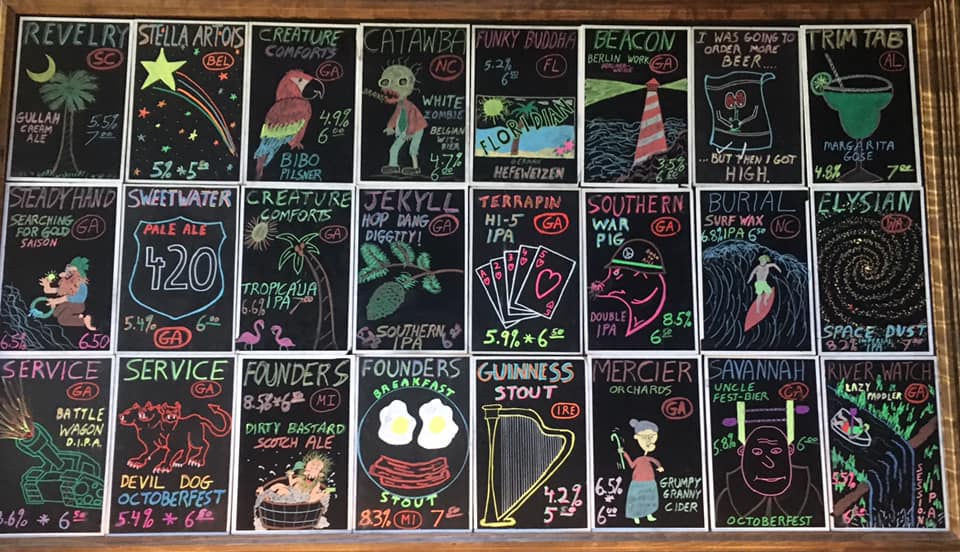 REVELRY
SC
GULLAH
CREAM
ALE
5.5%
7.00
STELLA ARTOIS
BEL
5% * 5.50
CREATURE
COMFORTS
GA
4.9%
6.00
BIBO
PILSNER
CATAWBA
NC
WHITE
ZOMBIE
BELGIAN
WIT-
BIER
4.7%
6.00
FUNKY BUDDHA
5.2%
6.50
FL
FLORIDIAN
GERMAN
HEFEWEIZEN
BEACON
BERLIN WORK
GA
BERLINER-
WEISSE
3.5%
6.00
I WAS GOING TO
ORDER MORE
BEER....
...BUT THEN I GOT
HIGH.
TRIM TAB
AL
MARGARITA
GOSE
4.8% 7.00
STEADY HAND
SEARCHING
FOR GOLD
SAISON
GA
6.5% 6.50
SWEETWATER
PALE ALE
420
5.4% 6.00
GA
CREATURE
COMFORTS
GA
TROPICALIA
6.6% IPA 7.00
JEKYLL
HOP DANG
DIGGITY!
GA
SOUTHERN
IPA
TERRAPIN
HI-5
IPA
GA
A 2 3 4 5
5.9% * 6.50
SOUTHERN
WAR
PIG
GA
DOUBLE
IPA
8.5%
6.50
BURIAL
SURF WAX
6.8% IPA 6.50
NC
ELYSIAN
WA
SPACE DUST
8.2% IMPERIAL IPA 7.00
SERVICE
GA
BATTLE
WAGON
D.I.P.A.
8.6% * 6.50
SERVICE
GA
DEVIL DOG
OCTOBERFEST
5.4% * 6.50
FOUNDERS
8.5% * 6.50
MI
DIRTY BASTARD
SCOTCH ALE
FOUNDERS
BREAKFAST
STOUT
8.3% MI 7.50
GUINNESS
STOUT
IRE
4.2%
5.50
MERCIER
ORCHARDS
GA
6.5%
6.00
GRUMPY
GRANNY
CIDER
SAVANNAH
UNCLE
FEST-BIER
GA
5.8% 6.00
OCTOBERFEST
RIVER WATCH
LAZY
PADDLER
GA
SESSION
IPA